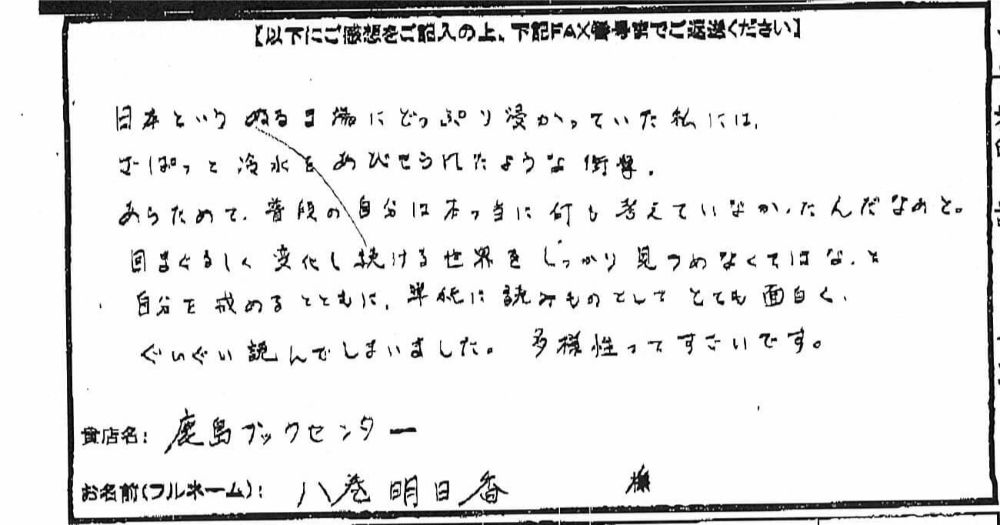 【以下にご感想をご記入の上、下記FAX番号までご返送ください】
日本というぬるま湯にどっぷり浸かっていた私には、
ざばっと冷水をあびせられたような衝撃。
あらためて、普段の自分は本っ当に何も考えていなかったんだなあと。
目まぐるしく変化し続ける世界をしっかり見つめなくてはな、と
自分を戒めるとともに、単純に読みものとしてとても面白く、
ぐいぐい読んでしまいました。多様性ってすごいです。
貴店名：鹿島ブックセンター
お名前(フルネーム)：八巻明日香 様